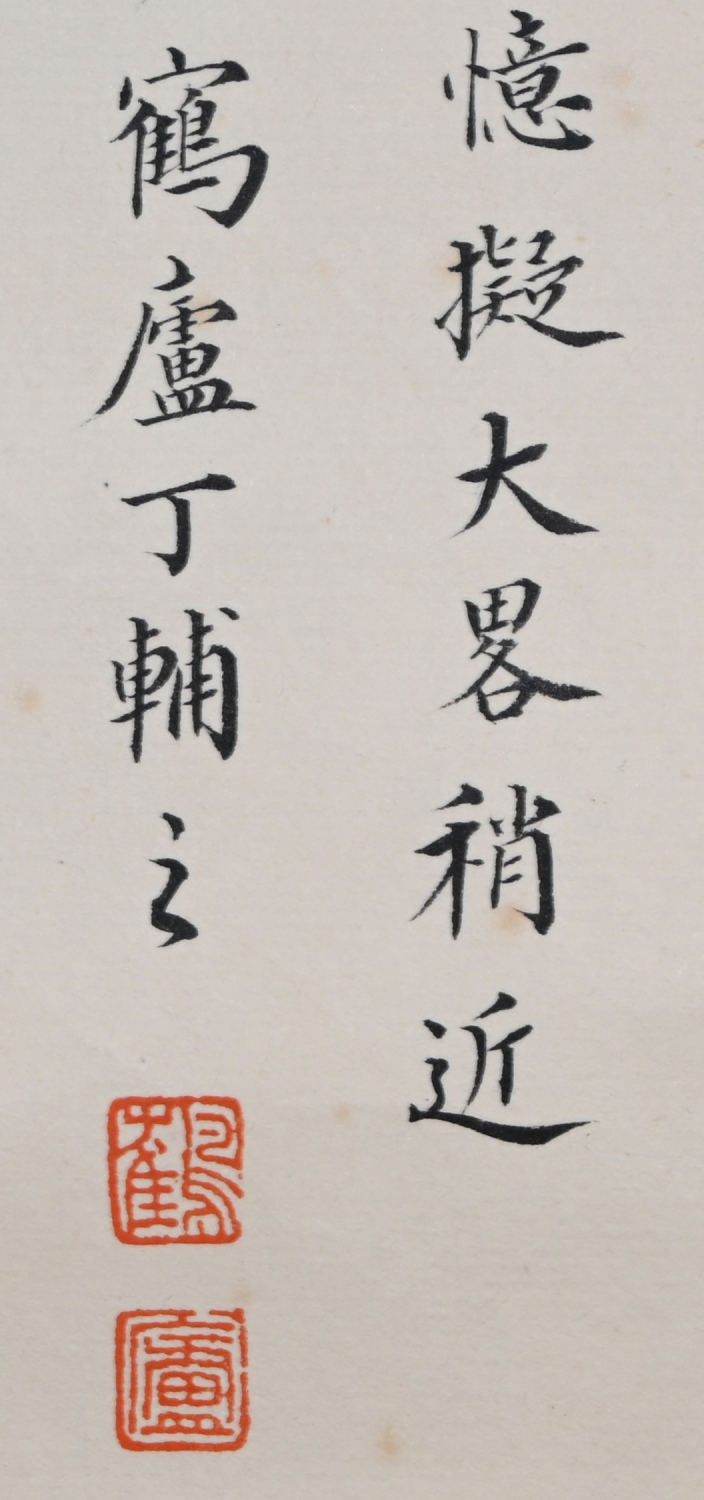 憶擬大畧稍近
鶴廬丁輔之
鶴
廬